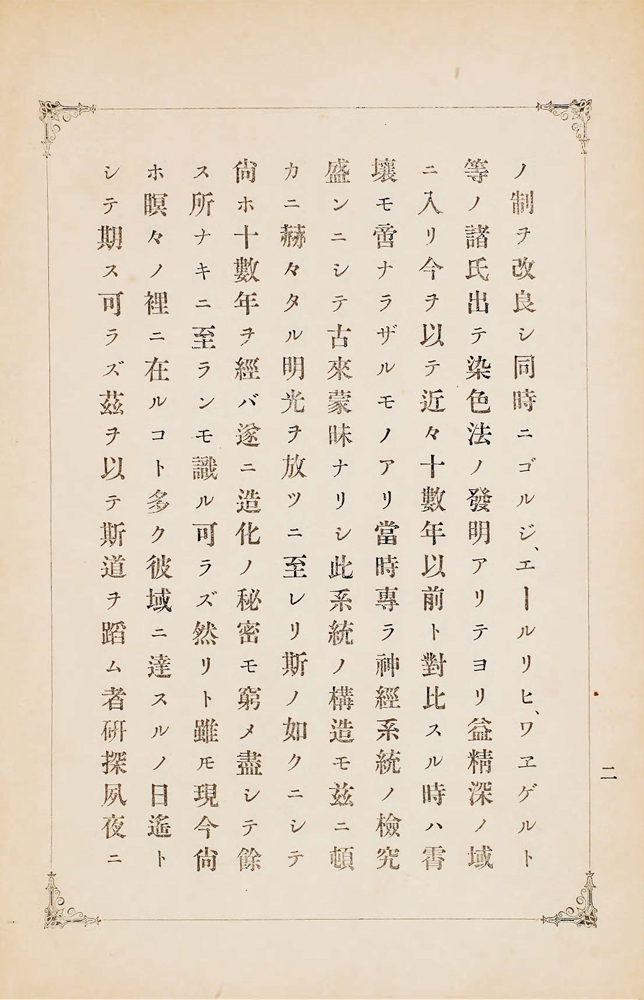 ノ制ヲ改良シ同時ニゴルジ、エールリヒ、ワヱゲルト
等ノ諸氏出テ染色法ノ發明アリテヨリ益精深ノ域
ニ入リ今ヲ以テ近々十數年以前ト對比スル時ハ霄
壤モ啻ナラザルモノアリ當時專ラ神經系統ノ檢究
盛ンニシテ古來蒙昧ナリシ此系統ノ構造モ玆ニ頓
カニ赫々タル明光ヲ放ツニ至レリ斯ノ如クニシテ
尙ホ十數年ヲ經バ遂ニ造化ノ秘密モ窮メ盡シテ餘
ス所ナキニ至ランモ識ル可ラズ然リト雖𪜈現今尙
ホ瞑々ノ裡ニ在ルコト多ク彼域ニ達スルノ日遙ト
シテ期ス可ラズ茲ヲ以テ斯道ヲ蹈ム者硏探夙夜ニ
二